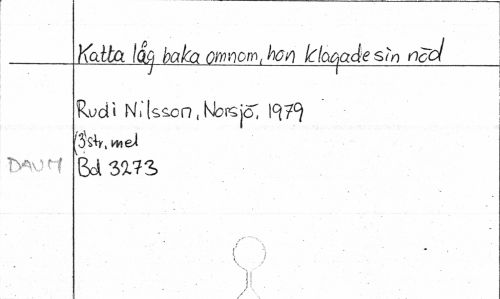 Katta låg baka omnom, hon klagade sin nöd
Rudi Nilsson, Norsjö, 1979
(3 str, mel
DAUM Bd 3273